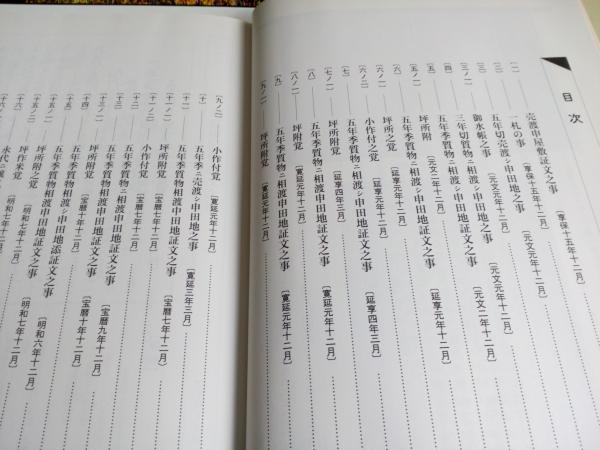 目次
〔一〕 売渡申屋敷証文之事 〔享保十五年十二月〕
〔二〕 一札の事 〔享保十五年十二月〕
五年切売渡シ申田地之事 〔元文元年十二月〕
〔三〕 御水帳之事 〔元文元年十二月〕
〔三ノ一〕 三年切質物ニ相渡シ申田地之事 〔元文二年十二月〕
〔四〕 五年季質物ニ相渡申田地証文之事
〔五〕 坪所附 〔元文二年十二月〕
〔五ノ一〕 五年季質物ニ相渡申田地証文之事 〔延享元年十二月〕
〔六〕 坪所之覚 〔延享元年十二月〕
〔六ノ一〕 小作付之覚 〔延享元年十二月〕
〔六ノ二〕 五年季質物ニ相渡シ申田地証文之事 〔延享四年三月〕
〔七〕 坪所附覚 〔延享四年三月〕
〔七ノ一〕 五年季質物ニ相渡申田地証文之事 〔寛延元年十二月〕
〔八〕 坪附覚 〔寛延元年十二月〕
〔八ノ一〕 五年季質物ニ相渡申田地証文之事 〔寛延元年十二月〕
〔九〕 坪所附覚 〔寛延元年十二月〕
〔九ノ一〕
〔九ノ二〕 小作付覚 〔寛延元年十二月〕
〔十〕 五年季ニ売渡シ申田地之事 〔寛延三年三月〕
〔十一〕 五年季質物相渡申田地証文之事 〔宝暦七年十二月〕
〔十一ノ一〕 坪所附覚 〔宝暦七年十二月〕
〔十一ノ二〕 小作付覚 〔宝暦七年十二月〕
〔十二〕 五年季質物ニ相渡申田地証文之事 〔宝暦九年十二月〕
〔十三〕 五年季質物相渡申田地証文之事 〔宝暦十年十二月〕
〔十三ノ一〕 坪所附覚 〔宝暦十年十二月〕
〔十四〕 五年季質物相渡シ申田地添証文之事
〔十五〕 五年季質物相渡シ申田地証文之事 〔明和六年十二月〕
〔十五ノ一〕 坪所之覚 〔明和七年十二月〕
〔十五ノ二〕 坪作米覚 〔明和七年十二月〕
永代ニ